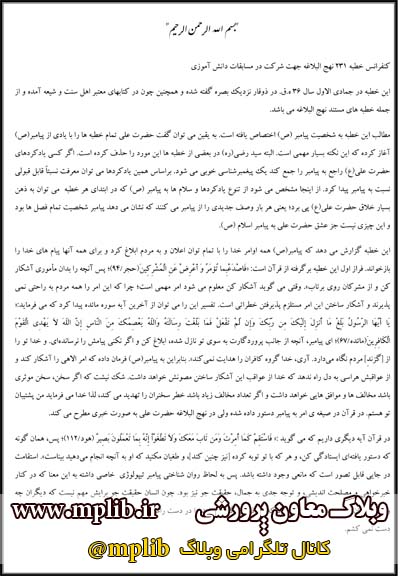 "بسم الله الرحمن الرحیم"
کنفرانس خطبه ۲۳۱ نهج البلاغه جهت شرکت در مسابقات دانش آموزی
این خطبه در جمادی الاول سال ۳۶ ه.ق. در ذوقار نزدیک بصره گفته شده و همچنین چون در کتابهای معتبر اهل سنت و شیعه آمده و از
جمله خطبه های مستند نهج البلاغه می باشد.
مطالب این خطبه به شخصیت پیامبر (ص) اختصاص یافته است. به یقین می توان گفت حضرت علی تمام خطبه ها را با یادی از پیامبر(ص)
آغاز کرده که این نکته بسیار مهمی است. البته سید رضی(ره) در بعضی از خطبه ها این مورد را حذف کرده است. اگر کسی یادکردهای
حضرت علی(ع) راجع به پیامبر را جمع کند یک پیغمبرشناسی خوبی می شود. براساس همین یادکردها می توان معرفت نسبتاً قابل قبولی
نسبت به پیامبر پیدا کرد. از اینجا مشخص می شود از تنوع یادکردها و سلام ها به پیامبر (ص) که در ابتدای هر خطبه می توان به ذهن
بسیار خلاق حضرت علی(ع) پی برد؛ یعنی هر بار وصف جدیدی را از پیامبر می کنند که نشان می دهد پیامبر شخصیت تمام فصل ها بود
و این چیزی نیست جز عشق حضرت علی به پیامبر اسلام (ص).
این خطبه گزارش می دهد که پیامبر(ص) همه اوامر خدا را با تمام توان اعلان و به مردم ابلاغ کرد و برای همه آنها پیام های خدا را
بازخواند. فراز اول این خطبه برگرفته از قرآن است: «فَاصْدَعْ بِمَا تُؤْمَرُ وَ أَعْرِضْ عَنِ الْمُشْرِكِينَ(حجر/۹۴)» پس آنچه را بدان مأموری آشکار
کن و از مشرکان روی برتاب. وقتی می گوید آشکار کن معلوم می شود امر مهمی است؛ چرا که این امر را همه مردم به راحتی نمی
پذیرند و آشکار ساختن این امر مستلزم پذیرفتن خطراتی است. تفسیر این را می توان از آخرین آیه سوره مائده پیدا کرد که می فرماید:«
يَا أَيُّهَا الرَّسُولُ بَلِّغْ مَا أُنْزِلَ إِلَيْكَ مِن رَبِّكَ وَإِن لَّمْ تَفْعَلْ فَمَا بَلَّغْتَ رِسَالَتَهُ وَاللّهُ يَعْصِمُكَ مِنَ النَّاسِ إِنَّ اللّهَ لاَ يَهْدِي الْقَوْمَ
الْكَافِرِينَ(مائده/۶۷)» ای پیامبر، آنچه از جانب پروردگارت به سوی تو نازل شده، ابلاغ کن و اگر نکنی پیامش را نرسانده‌ای. و خدا تو را
از [گزند] مردم نگاه می‌دارد. آری، خدا گروه کافران را هدایت نمی‌کند». بنابراین به پیامبر(ص) فرمان داده که امر الاهی را آشکار کند و
از عواقبش هراسی به دل راه ندهد که خدا از عواقب این آشکار ساختن مصونش خواهد داشت. شک نیست که اگر سخن، سخن موثری
باشد مخالف ها و موافق هایی خواهد داشت و اگر تعداد مخالف زیاد باشد خطر سخنران را تهدید می کند، لذا خدا می فرماید من پشتیبان
تو هستم. در قرآن در صیغه ی امر به پیامبر دستور داده شده ولی در نهج البلاغه حضرت علی به صورت خبری مطرح می کند.
در قرآن آیه دیگری داریم که می گوید :« فَاسْتَقِمْ كَمَا أُمِرْتَ وَمَن تَابَ مَعَكَ وَلاَ تَطْغَوْاْ إِنَّهُ بِمَا تَعْمَلُونَ بَصِيرٌ (هود/۱۱۲)» پس، همان گونه
که دستور یافته‌ای ایستادگی کن، و هر که با تو توبه کرده [نیز چنین کند]، و طغیان مکنید که او به آنچه انجام می‌دهید بیناست». استقامت
در جایی قابل تصور است که مانعی وجود داشته باشد. پس به لحاظ روان شناختی پیامبر تیپولوژی خاصی داشته به این معنا که در کنار
خیرخواهی و مصلحت اندیشی و توجه جدی به جمال، حقیقت جو نیز بود. چون انسان حقیقت جو برایش مهم نیست که دیگران چه
در دست
دست نمی کشم.
وبلاگ معاون پرورشی www.mplib.ir
www.mplib.ir
کانال تلگرامی وبلاگ @mplib